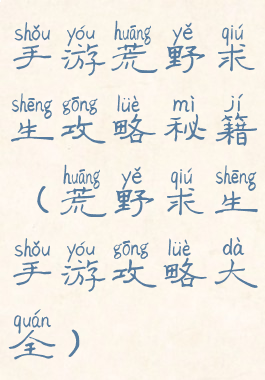 shǒu yóu huāng yě qiú
手游荒野求
shēng gōng lüè mì jí
生攻略秘籍
huāng yě qiú shēng
（荒野求生
shǒu yóu gōng lüè dà
手游攻略大
quán
全）